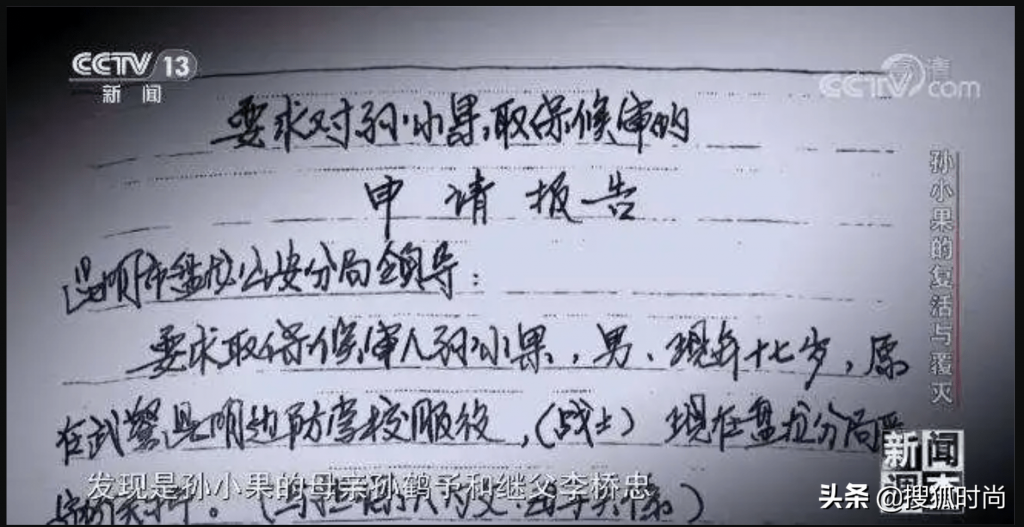 CCTV 13
新闻
CCTV com
要求对孙小果取保候审的
申请报告
昆明市盘龙公安分局领导：
要求取保候审人孙小果，男、现年十七岁，原
在武警昆明边防学校服役，（战士）现在盘龙分局
发现是孙小果的母亲孙鹤予和继父李桥忠
孙小果的复活与覆灭
新闻
头条 @搜狐时尚